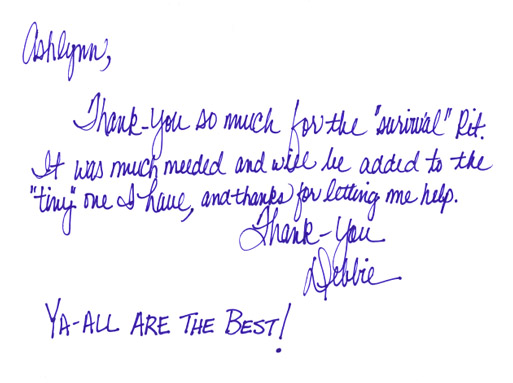 Ashlynn,
Thank-You so much for the "surivial" Kit.
It was much needed and will be added to the
"tiny" one I have, and thanks for letting me help.
Thank-You
Debbie
YA-ALL ARE THE BEST!